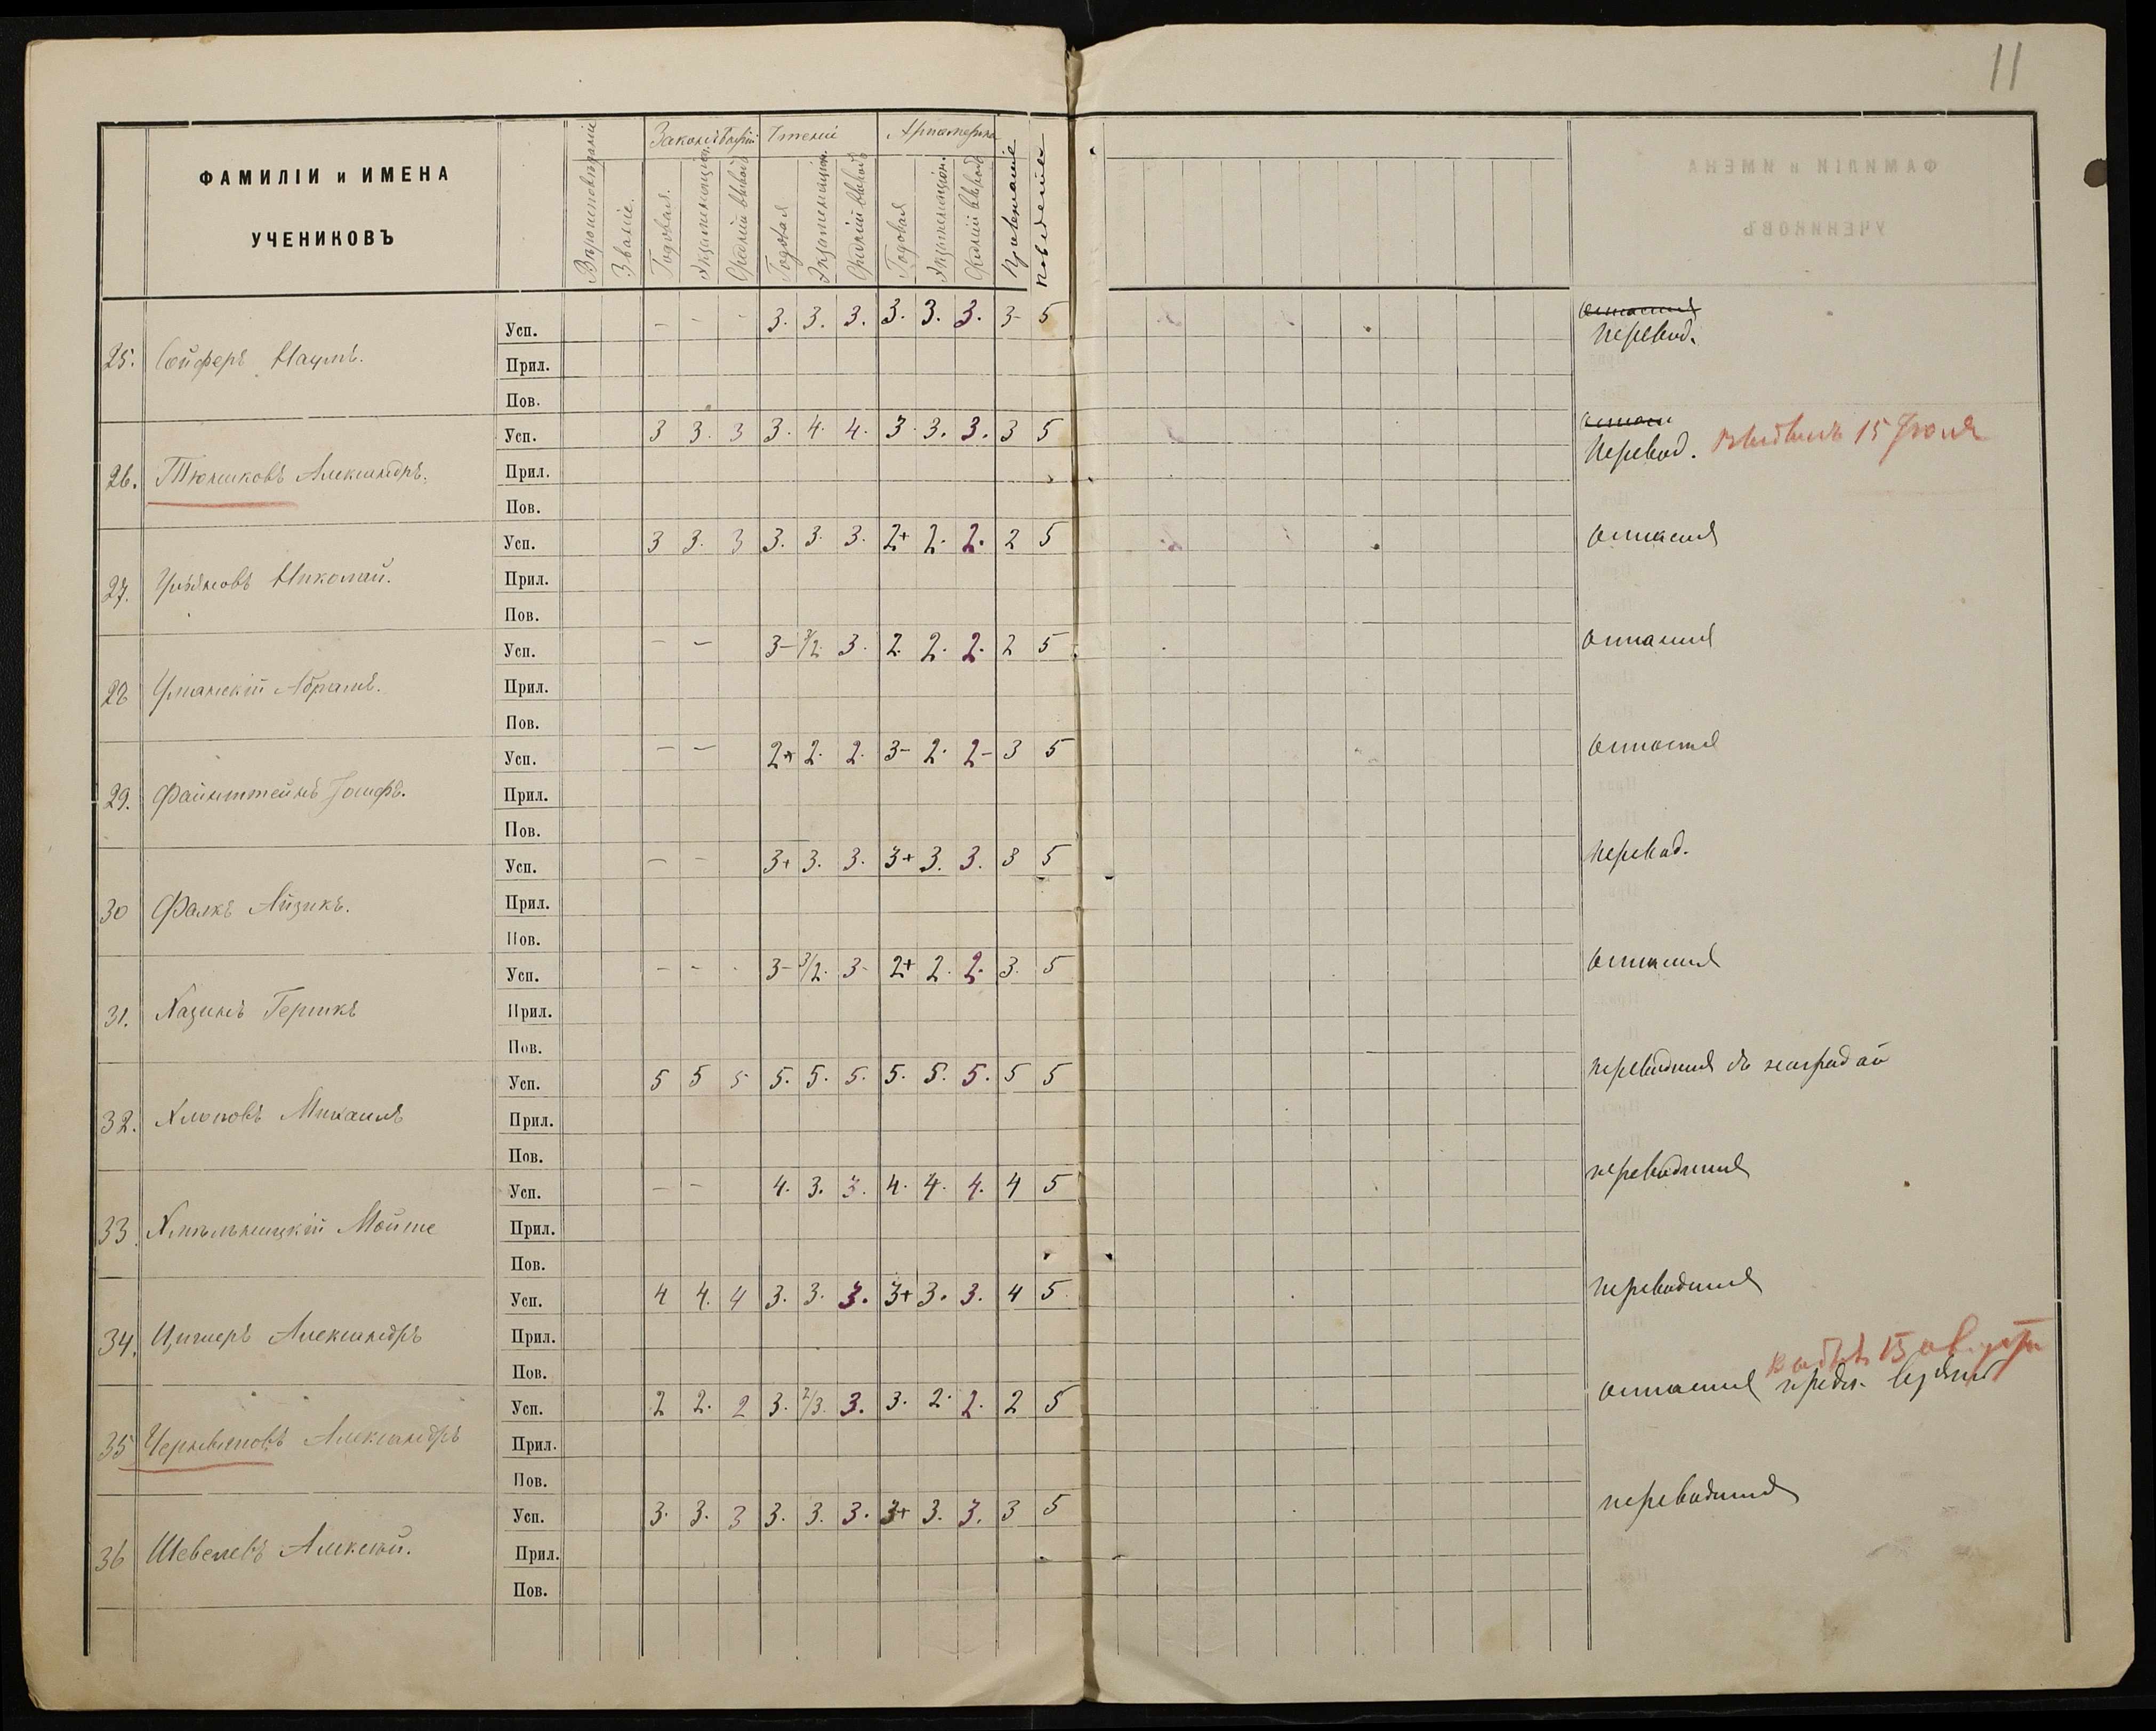 11
ФАМИЛІИ и ИМЕНА
УЧЕНИКОВЪ
Вѣроисповѣданіе
Званіе.
Законъ Божій
Годовая.
Экзаменаціон.
Средній выводъ
Чтеніе
Годовая
Экзаменаціон.
Средній выводъ
Ариѳметика
Годовая
Экзаменаціон.
Средній выводъ
Прилежаніе
Поведеніе
25. Сойферъ Наумъ. Усп. - - - 3. 3. 3. 3. 3. 3. 3- 5 остается
перевод.
Прил.
Пов.
26. Тюниковъ Александръ. Усп. 3 3. 3 3. 4. 4. 3. 3. 3. 3 5
Перевод. выбылъ 15 Іюля
Прил.
Пов.
27. Николай. Усп. 3 3. 3 3. 3. 3. 2+ 2. 2. 2 5 остается
Прил.
Пов.
28 Уманскій Абрамъ. Усп. - - 3- 3/2. 3. 2. 2. 2. 2 5 остается
Прил.
Пов.
29. Файнштейнъ Іосифъ. Усп. - - 2+ 2. 2. 3- 2. 2- 3 5 остается
Прил.
Пов.
30 Фалкъ Айзикъ. Усп. - - 3+ 3. 3. 3+ 3. 3. 3 5 перевод.
Прил.
Пов.
31. Хазинъ Гершкъ Усп. - - - 3- 3/2. 3- 2+ 2. 2. 3. 5 остается
Прил.
Пов.
32. Хлоповъ Михаилъ Усп. 5 5 5 5. 5. 5. 5. 5. 5. 5 5 переводится съ наградой
Прил.
Пов.
33. Хмѣльницкій Мойше Усп. - - 4. 3. 3. 4. 4. 4. 4 5 переводится
Прил.
Пов.
34. Александръ Усп. 4 4. 4 3. 3. 3. 3+ 3. 3. 4 5 переводится
Прил.
Пов.
15 августа
35 Александръ Усп. 2 2. 2 3. 2/3. 3. 3. 2. 2. 2 5 остается
Прил.
Пов.
36 Шевелевъ Алексѣй. Усп. 3. 3. 3 3. 3. 3. 3+ 3. 3. 3 5 переводится
Прил.
Пов.